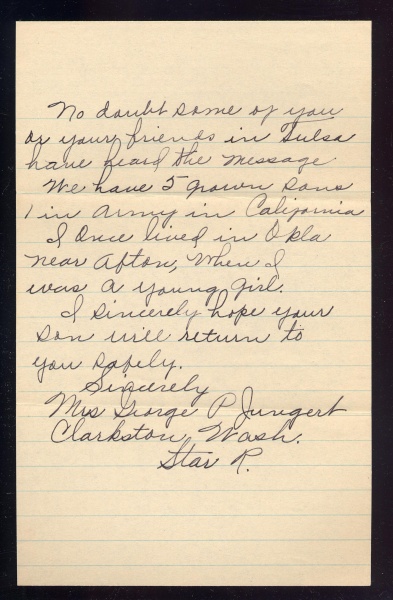 No doubt some of you
or your friends in Tulsa
have heard the message.
We have 5 grown sons
1 in Army in California
I once lived in Okla
near Afton, When I
was a young girl.
I sincerely hope your
son will return to
you safely.
Sincerely
Mrs George P Jungert
Clarkston, Wash.
Star R.